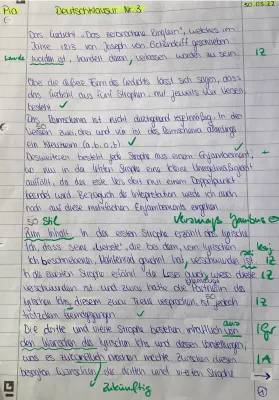 Pia Deutschklausur Nr. 3 30.03.22
Das Gedicht „Das zerbrochene Ringlein", welches im
Jahre 1813 von Joseph von Eichendorff geschrieben
wurde worden ist, handelt davon, verlassen worden zu sein. 1Z
Über die äußere Form des Gedichts lässt sich sagen, dass
das Gedicht aus fünf Strophen mit jeweils vier Versen
besteht.
Das Reimschema ist nicht durchgehend regelmäßig. In den
Versen zwei, drei und vier ist das Reimschema allerdings
ein Kreuzreim (a, b, a, b).
Desweiteren besteht jede Strophe aus einem Enjambement,
wo nur in der letzten Strophe eine kleine
auffällt, da das erste Vers dort mit einem Doppelpunkt
beendet wird. Bezüglich der Interpretation werde ich auch
noch auf diese mehrfachen Enjambements eingehen.
so Stil Versmaß Jambus
Zum Inhalt: In der ersten Strophe erzählt das lyrische
Ich, dass seine „Liebste", die bei dem, vom lyrischen
Ich beschriebenen, Mühlenrad gewohnt hat, verschwunden ist. 1Z
In der zweiten Strophe erfährt der Leser auch, wieso diese 1Z
verschwunden ist und zwar hatte die Partnerin des
lyrischen Ichs diesem zwar Treue versprochen, ist jedoch 1Z
trotzdem fremdgegangen.
Die dritte und vierte Strophe bestehen inhaltlich von aus
den Wünschen des lyrischen Ichs und dessen Vorstellungen, 1Gr
was es zukünftlich machen möchte. Zwischen diesen 1A
besagten Wünschen, die dritten und vierten Strophe
zukünftig